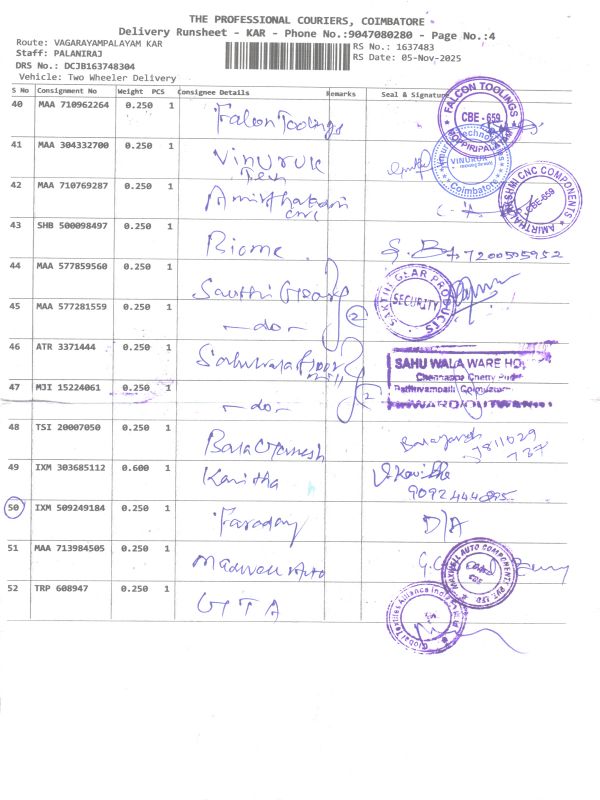 THE PROFESSIONAL COURIERS, COIMBATORE
Delivery Runsheet - KAR - Phone No.:9047080280 - Page No.:4
Route: VAGARAYAMPALAYAM KAR
RS No.: 1637483
Staff: PALANIRAJ
RS Date: 05-Nov-2025
DRS No.: DCJB163748304
Vehicle: Two Wheeler Delivery
S No Consignment No Weight PCS Consignee Details Remarks Seal & Signature
40 MAA 710962264 0.250 1 Falcon Toolings
FALCON TOOLINGS
CBE-659
41 MAA 304332700 0.250 1 Vinuruk
Tech
VINURUK
Coimbatore
42 MAA 710769287 0.250 1
CNC
CNC COMPONENTS
CBE-659
43 SHB 500098497 0.250 1 Biome
7200505952
44 MAA 577859560 0.250 1
SAKTHI GEAR PRODUCTS
SECURITY
2
45 MAA 577281559 0.250 1 -do-
46 ATR 3371444 0.250 1
SAHU WALA WARE HO
Chennappa Chetty
47 MJI 15224061 0.250 1 -do-
2
INWARD/OUTWARD
48 TSI 20007050 0.250 1 Bala Ganesh
7811029
737
49 IXM 303685112 0.600 1 Kavitha
Kavitha
9092444895
50 IXM 509249184 0.250 1 Faraday D/A
51 MAA 713984505 0.250 1 Maxwell Auto
MAXWELL AUTO COMPONENTS PVT. LTD
52 TRP 608947 0.250 1 GTA
Global Textiles Alliance India